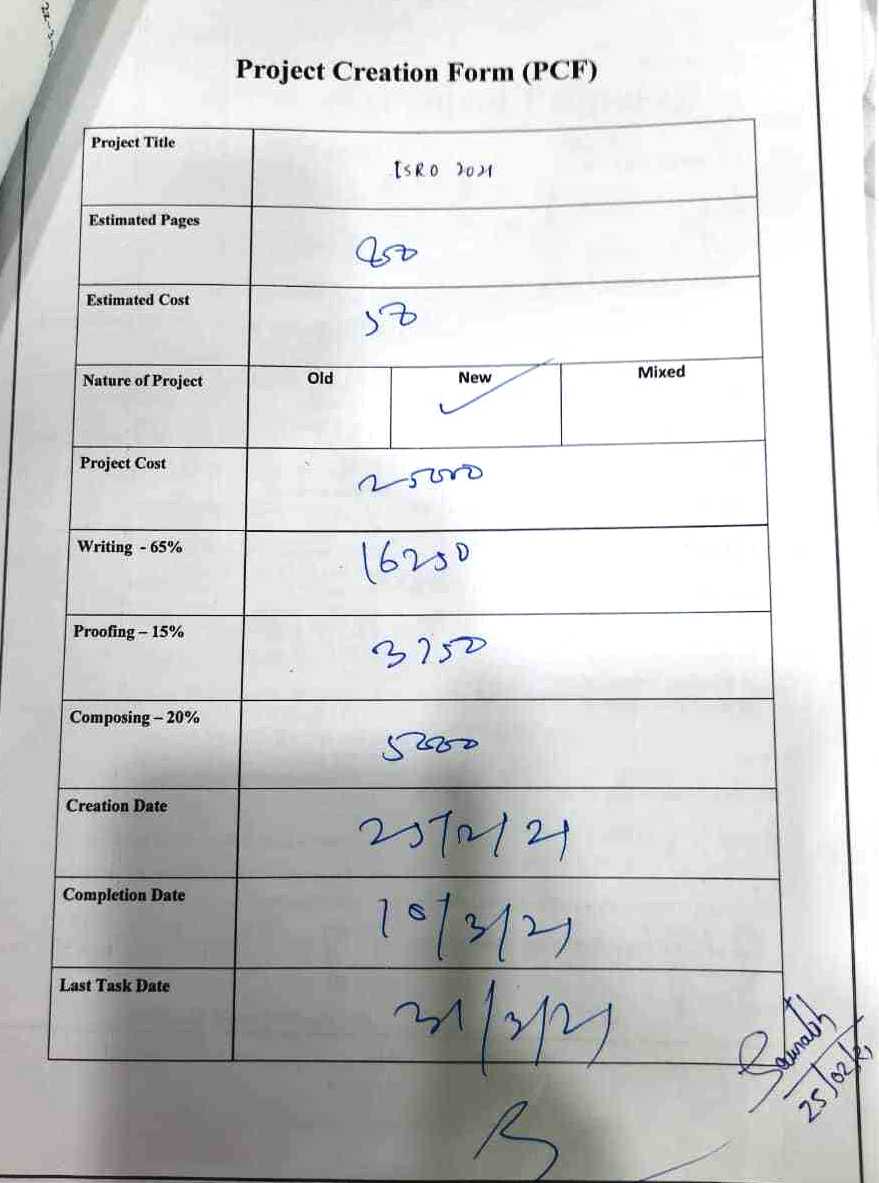 Project Creation Form (PCF)
Project Title
ISRO 2021
Estimated Pages
Estimated Cost
50
Nature of Project Old New Mixed
Project Cost
25000
Writing - 65%
16250
Proofing – 15%
3750
Composing – 20%
5000
Creation Date
25/2/21
Completion Date
10/3/21
Last Task Date
31/3/21
Saurabh
25/02/21